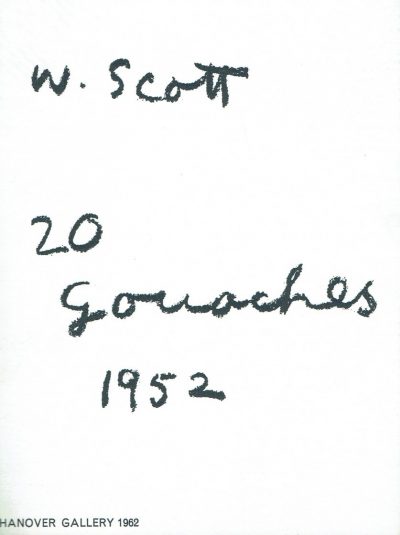 W. Scott
20
Gouaches
1952
HANOVER GALLERY 1962